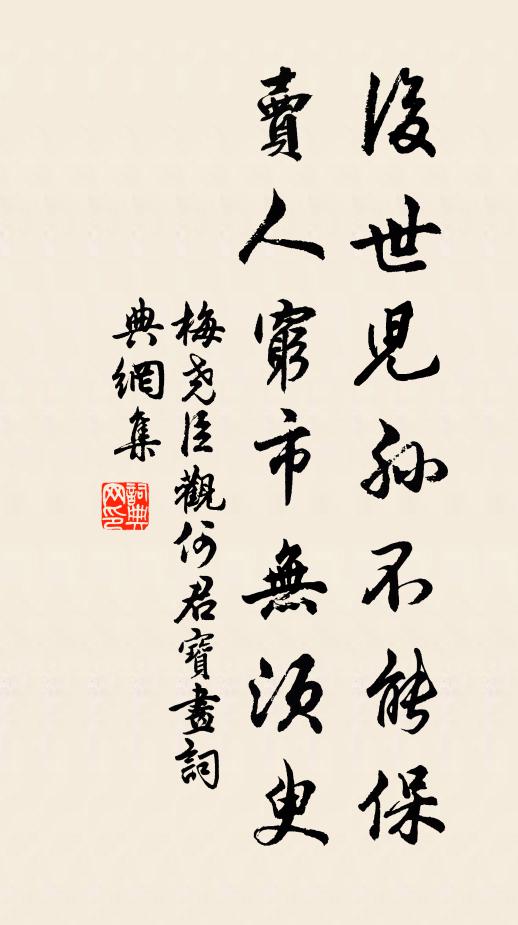 後世兒孫不能保
賣人窮市無須臾
梅堯臣觀何君寶畫詞
典網集
詞典
网印